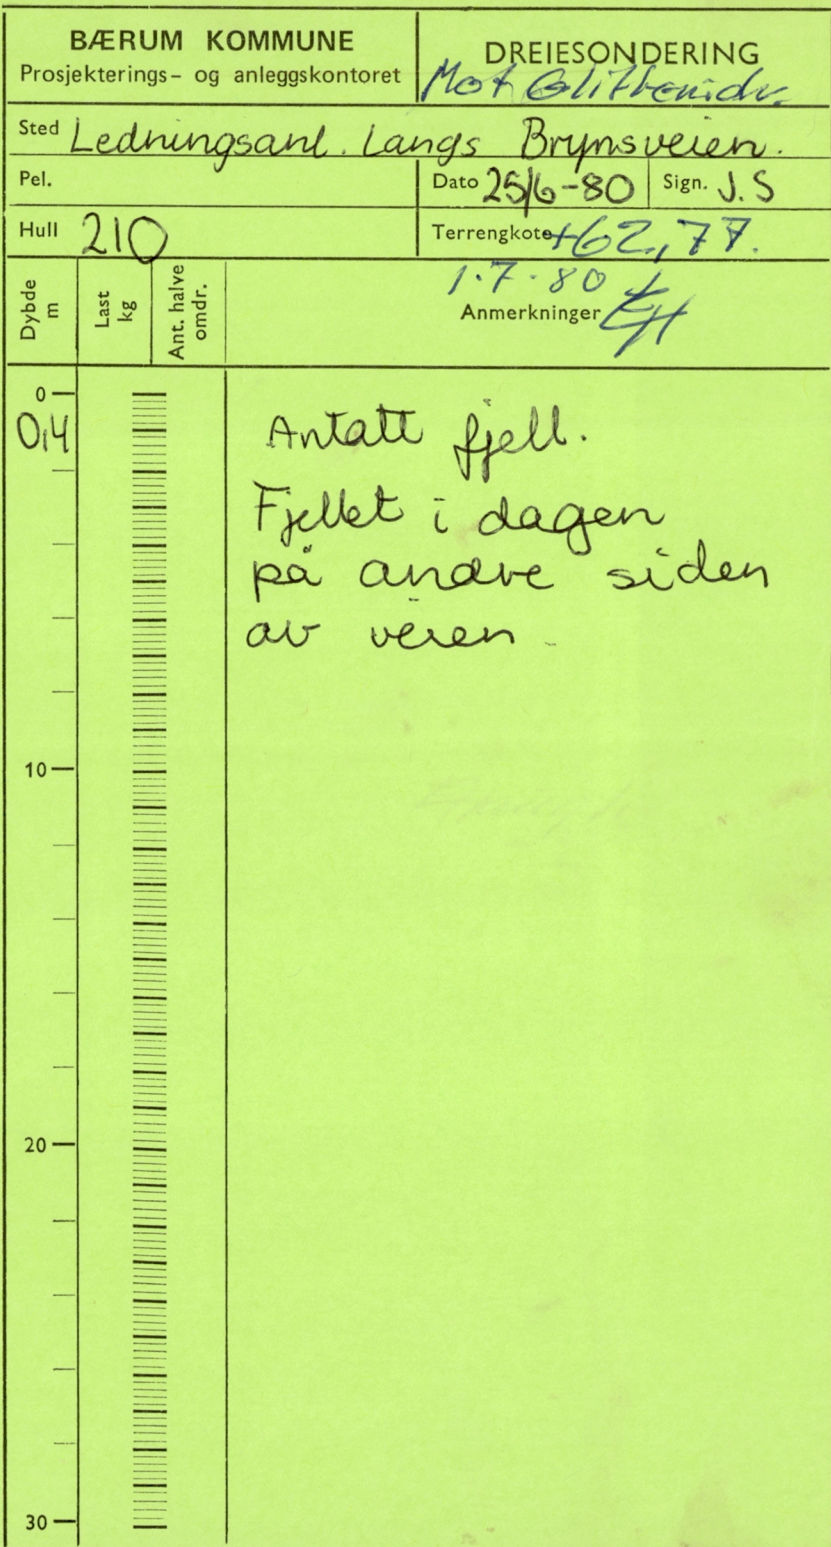 BÆRUM KOMMUNE
Prosjekterings- og anleggskontoret
DREIESONDERING
Mot
Sted Ledningsanl. Langs Brynsveien.
Pel.
Dato 25/6-80 Sign. J.S
Hull 210
Terrengkote +62,77.
1.7.80
Dybde m
Last kg
Ant. halve omdr.
Anmerkninger
0
0,4
Antatt fjell.
Fjellet i dagen
på andre siden
av veien
10
20
30